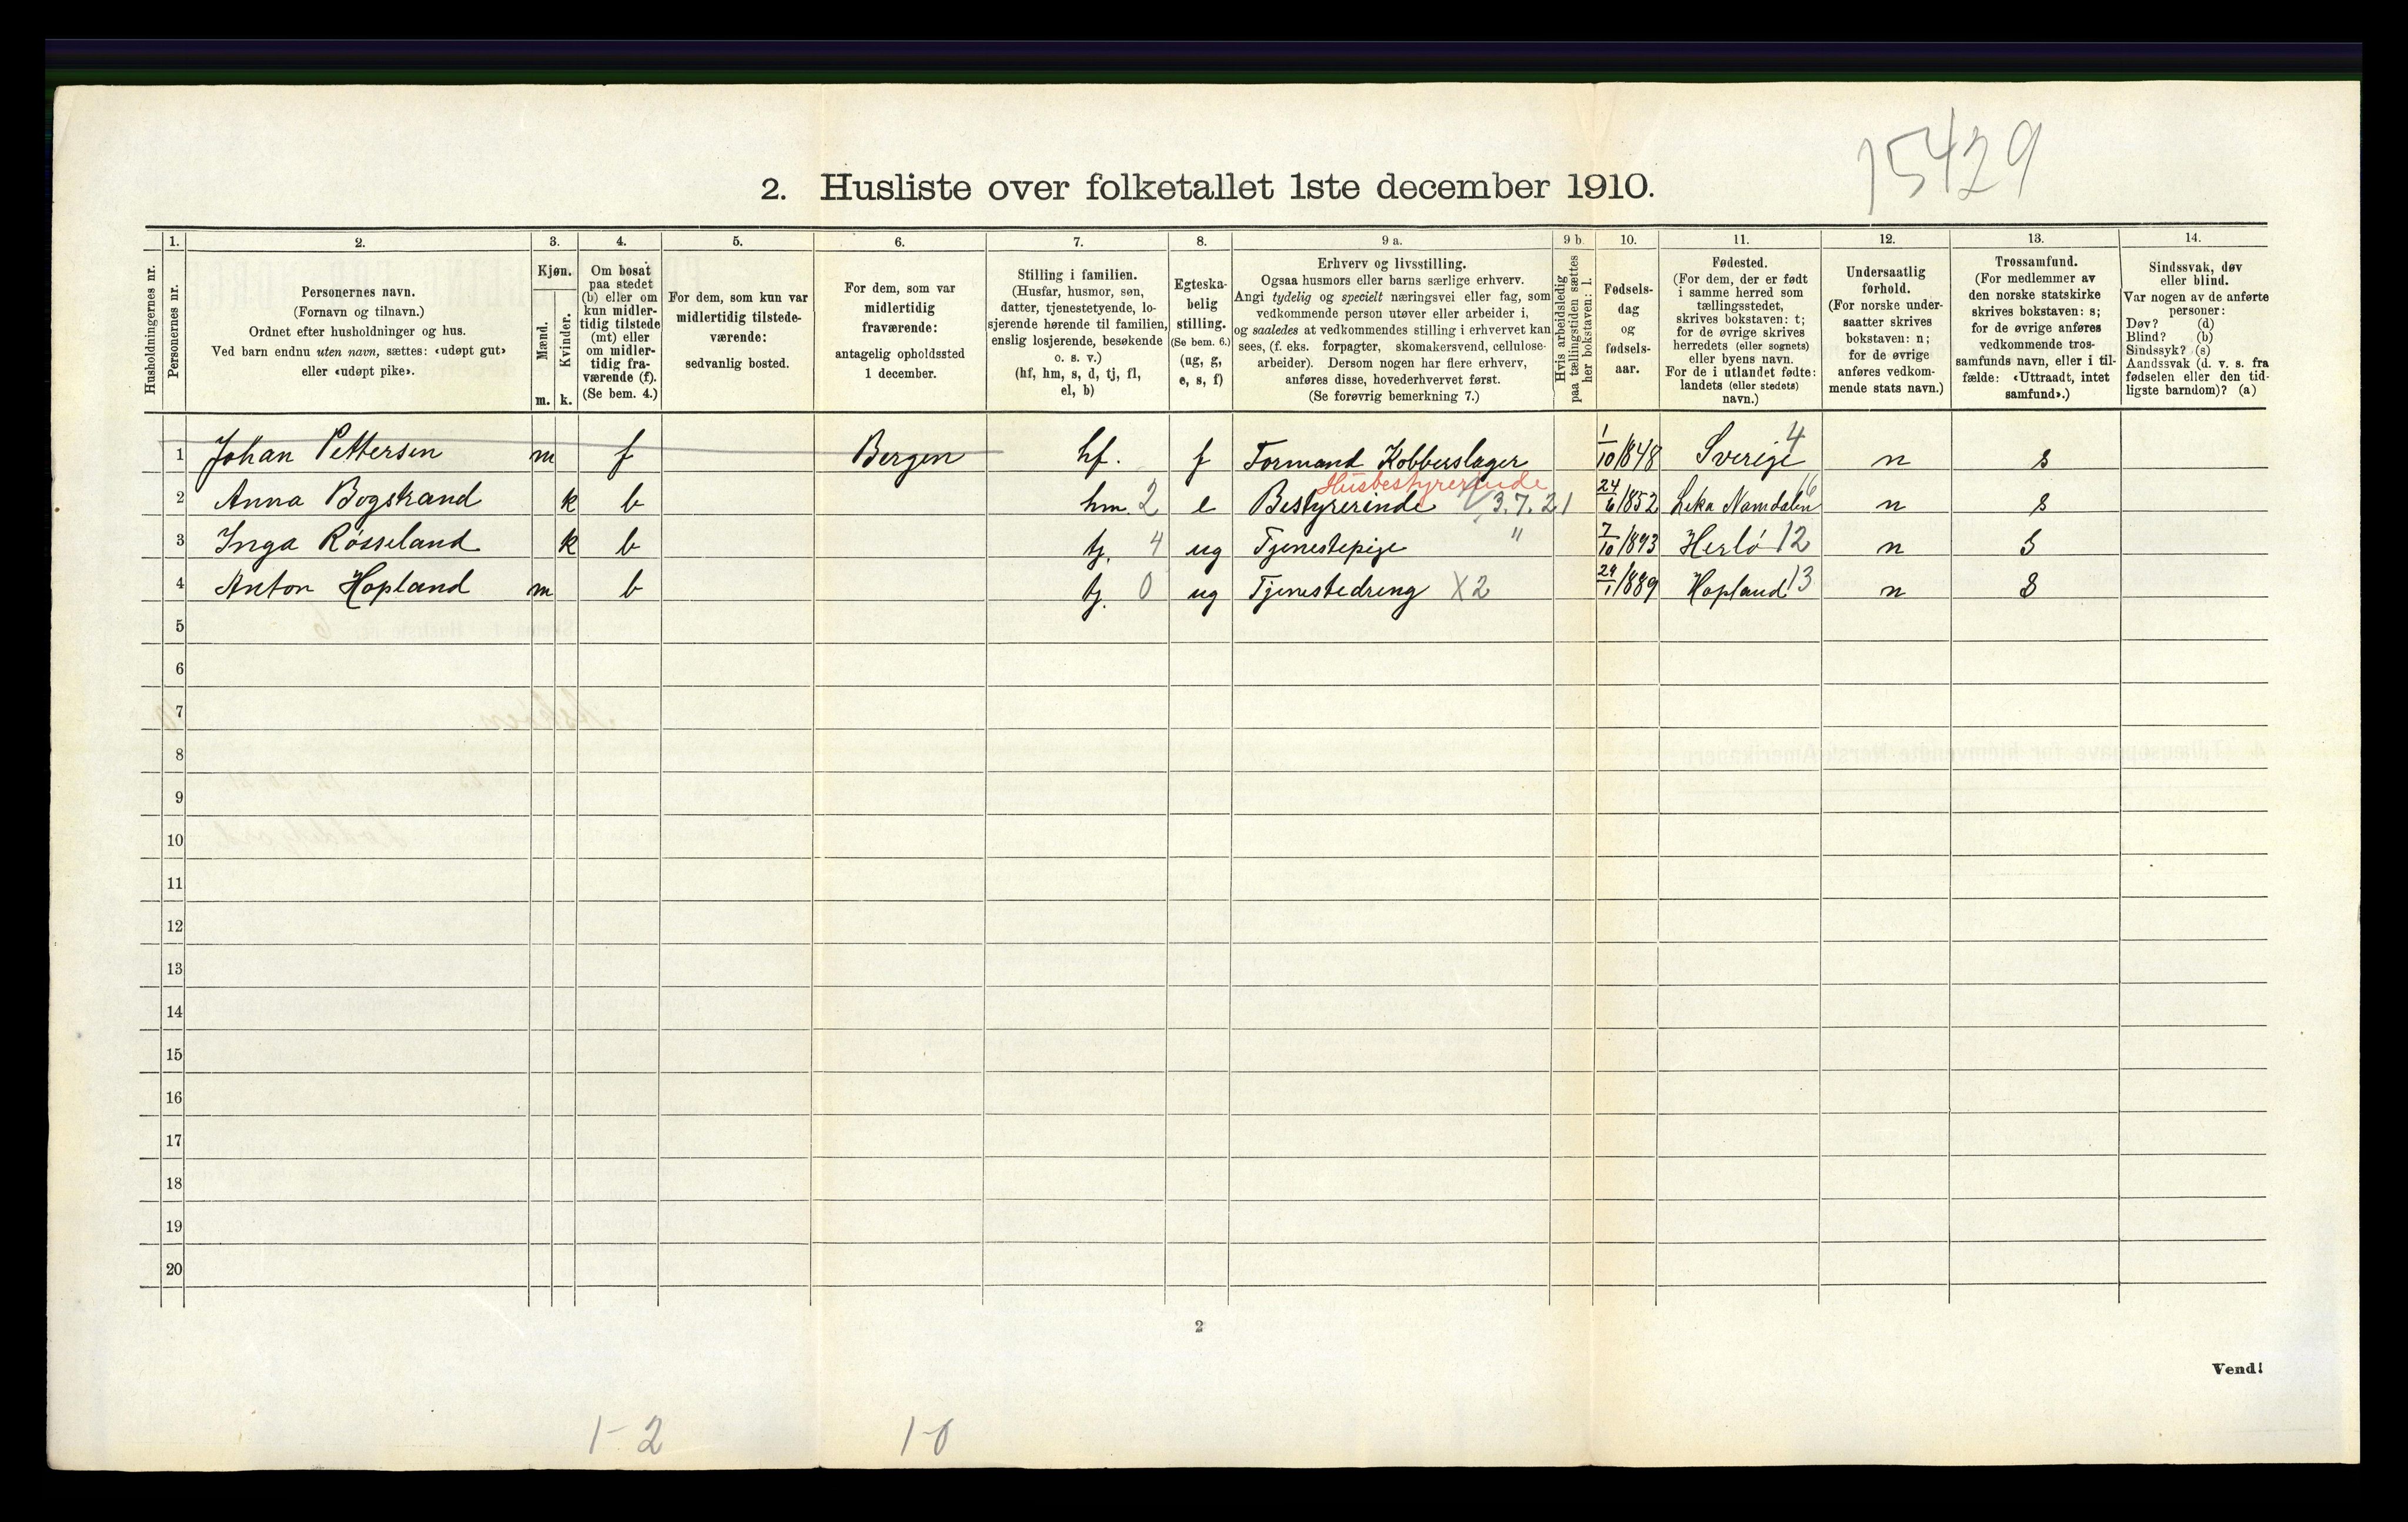 15429
2. Husliste over folketallet 1ste december 1910.
Husholdningernes nr.
1.
Personernes nr.
2.
Personernes navn.
(Fornavn og tilnavn.)
Ordnet efter husholdninger og hus.
Ved barn endnu uten navn, sættes: «udøpt gut»
eller «udøpt pike».
3.
Kjøn.
Mænd.
Kvinder.
m. k.
4.
Om bosat
paa stedet
(b) eller om
kun midler-
tidig tilstede
(mt) eller
om midler-
tidig fra-
værende (f).
(Se bem. 4.)
5.
For dem, som kun var
midlertidig tilstede-
værende:
sedvanlig bosted.
6.
For dem, som var
midlertidig
fraværende:
antagelig opholdssted
1 december.
7.
Stilling i familien.
(Husfar, husmor, søn,
datter, tjenestetyende, lo-
sjerende hørende til familien,
enslig losjerende, besøkende
o. s. v.)
(hf, hm, s, d, tj, fl,
el, b)
8.
Egteska-
belig
stilling.
(Se bem. 6.)
(ug, g,
e, s, f)
9 a.
Erhverv og livsstilling.
Ogsaa husmors eller barns særlige erhverv.
Angi tydelig og specielt næringsvei eller fag, som
vedkommende person utøver eller arbeider i,
og saaledes at vedkommendes stilling i erhvervet kan
sees, (f. eks. forpagter, skomakersvend, cellulose-
arbeider). Dersom nogen har flere erhverv,
anføres disse, hovederhvervet først.
(Se forøvrig bemerkning 7.)
9 b.
Hvis arbeidsledig
paa tællingstiden sættes
her bokstaven: l.
10.
Fødsels-
dag
og
fødsels-
aar.
11.
Fødested.
(For dem, der er født
i samme herred som
tællingsstedet,
skrives bokstaven: t;
for de øvrige skrives
herredets (eller sognets)
eller byens navn.
For de i utlandet fødte:
landets (eller stedets)
navn.)
12.
Undersaatlig
forhold.
(For norske under-
saatter skrives
bokstaven: n;
for de øvrige
anføres vedkom-
mende stats navn.)
13.
Trossamfund.
(For medlemmer av
den norske statskirke
skrives bokstaven: s;
for de øvrige anføres
vedkommende tros-
samfunds navn, eller i til-
fælde: «Uttraadt, intet
samfund».)
14.
Sindssvak, døv
eller blind.
Var nogen av de anførte
personer:
Døv? (d)
Blind? (b)
Sindssyk? (s)
Aandssvak (d. v. s. fra
fødselen eller den tid-
ligste barndom)? (a)
1 Johan Pettersen m f Bergen hf. f Formand Kobberslager 1/10 1848 Sverige 4 n s
Husbestyrerinde
2 Anna Bogstrand k b hm. 2 e Bestyrerinde 3.7.21 24/6 1852 Leka Namdalen 16 n s
3 Inga Røsseland k b tj. 4 ug Tjenestepige " 7/10 1893 Herlö 12 n S
4 Anton Hopland m b tj. 0 ug Tjenestedreng X2 29/1 1889 Hopland 13 n S
5
6
7
8
9
10
11
12
13
14
15
16
17
18
19
20
2
Vend!
1-2 1-0